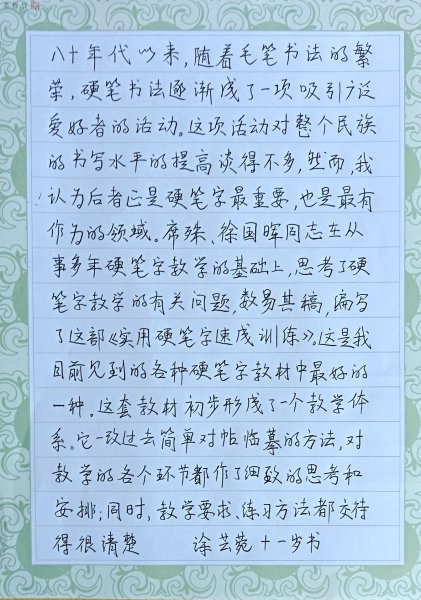 八十年代以来,随着毛笔书法的繁
荣,硬笔书法逐渐成了一项吸引广泛
爱好者的活动。这项活动对整个民族
的书写水平的提高谈得不多,然而,我
认为后者正是硬笔字最重要,也是最有
作为的领域。席殊、徐国晖同志在从
事多年硬笔字教学的基础上,思考了硬
笔字教学的有关问题,数易其稿,编写
了这部《实用硬笔字速成训练》。这是我
目前见到的各种硬笔字教材中最好的
一种。这套教材初步形成了一个教学体
系。它一改过去简单对帖临摹的方法,对
教学的各个环节都作了细致的思考和
安排;同时,教学要求、练习方法都交待
得很清楚 涂芸菀 十一岁书